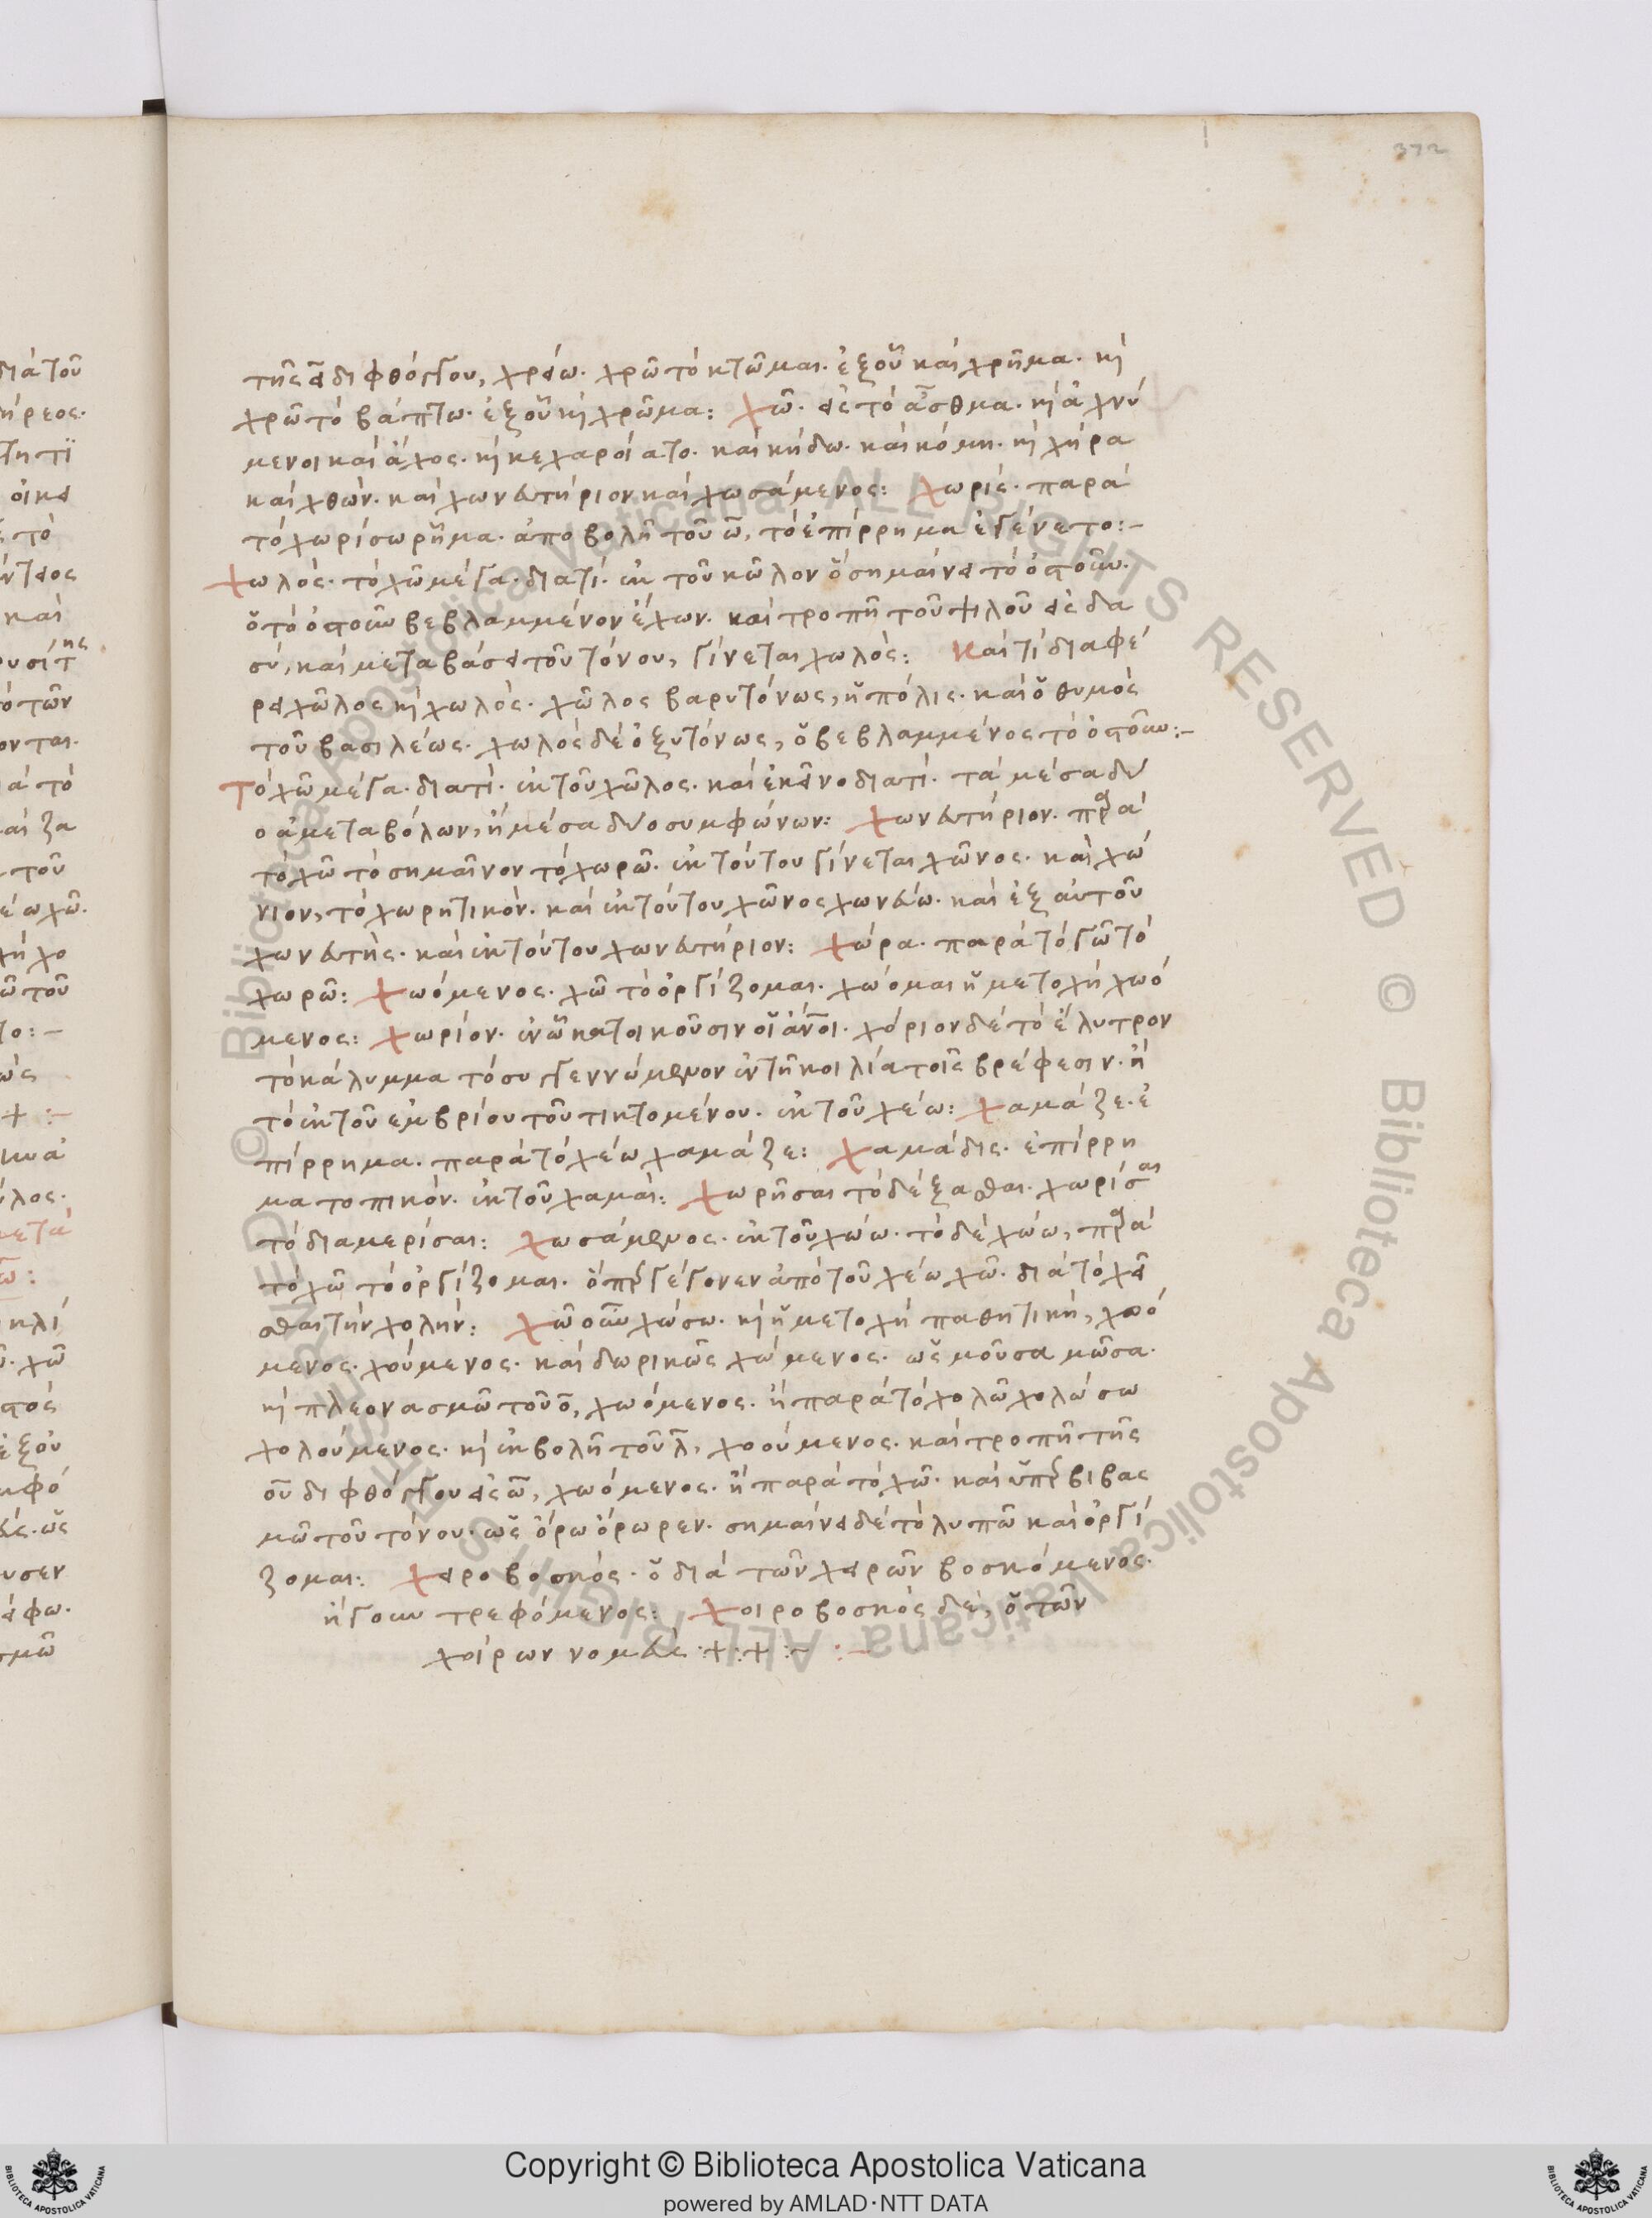 372
τῆς ει διφθόγγου, χράω. χρῶ τὸ κτῶμαι. ἐξ οὗ καὶ χρῆμα. κὶ
χρῶ τὸ βάπτω. ἐξ οὗ κὶ χρῶμα: χῶ. εἰς τὸ ἆσθμα. κὶ ἀχνύ
μενοι καὶ ἄχος. κὶ κεχαροίατο. καὶ κήδω. καὶ κόμη. κὶ χήρα
καὶ χθών. καὶ χωνευτήριον καὶ χωσάμενος: χωρίς. παρὰ
τὸ χωρίσω ῥῆμα. ἀποβολῆ τοῦ ω, τὸ ἐπίρρημα ἐγένετο:-
χωλός. τὸ χω μέγα. διατί. ἐκ τοῦ κῶλον ὃ σημαίνει τὸ ὀστοῦν.
ὁ τὸ ὀστοῦν βεβλαμμένον ἔχων. καὶ τροπῆ τοῦ ψιλοῦ εἰς δα
σύ, καὶ μεταβάσει τοῦ τόνου, γίνεται χωλός: Καὶ τί διαφέ
ρει χῶλος κὶ χωλός. χῶλος βαρυτόνως, ἡ πόλις. καὶ ὁ θυμὸς
τοῦ βασιλέως. χωλὸς δὲ ὀξυτόνως, ὁ βεβλαμμένος τὸ ὀστοῦν:-
Τὸ χω μέγα. διατί. ἐκ τοῦ χῶλος. καὶ ἐκεῖνο διατί. τὰ μέσα δύ
ο ἀμεταβόλων, ἢ μέσα δύο συμφώνων: χωνευτήριον. παρὰ
τὸ χῶ τὸ σημαῖνον τὸ χωρῶ. ἐκ τούτου γίνεται χῶνος. καὶ χώ
νιον, τὸ χωρητικόν. καὶ ἐκ τούτου χῶνος χωνεύω. καὶ ἐξ αὐτοῦ
χωνευτής. καὶ ἐκ τούτου χωνευτήριον: χώρα. παρὰ τὸ γῶ τὸ
χωρῶ: χωόμενος. χῶ τὸ ὀργίζομαι. χώομαι ἡ μετοχὴ χωό
μενος: χωρίον. ἐν ᾧ κατοικοῦσιν οἱ ἄνοι. χόριον δὲ τὸ ἔλυτρον
τὸ κάλυμμα τὸ συγγεννώμενον ἐν τῆ κοιλία τοῖς βρέφεσιν. ἢ
τὸ ἐκ τοῦ εμβρίου τοῦ τικτομένου. ἐκ τοῦ χέω: χαμάζε. ἐ
πίρρημα. παρὰ τὸ χέω χαμάζε: χαμάδις. ἐπίρρη
μα τοπικόν. ἐκ τοῦ χαμαί: χωρῆσαι τὸ δέξασθαι. χωρίσαι
τὸ διαμερίσαι: χωσάμενος. ἐκ τοῦ χώω. τὸ δὲ χώω, παρὰ
τὸ χῶ τὸ ὀργίζομαι. ὅπερ γέγονεν ἀπὸ τοῦ χέω χῶ. διὰ τὸ χεῖ
σθαι τὴν χολήν: χῶ οὖν χώσω. κὶ ἡ μετοχὴ παθητική, χωό
μενος. χούμενος. καὶ δωρικῶς χώμενος. ὡς μοῦσα μῶσα.
κὶ πλεονασμῶ τοῦ ο, χωόμενος. ἢ παρὰ τὸ χολῶ χολώσω
χολούμενος. κὶ ἐκβολῆ τοῦ λ, χοούμενος. καὶ τροπῆ τῆς
ου διφθόγγου εἰς ω, χωόμενος. ἢ παρὰ τὸ χῶ. καὶ ὑπερβιβας
μῶ τοῦ τόνου. ὡς ὄρω ὄρωρεν. σημαίνει δὲ τὸ λυπῶ καὶ ὀργί
ζομαι: χειροβοσκός. ὁ διὰ τῶν χειρῶν βοσκόμενος.
ἤγουν τρεφόμενος: χοιροβοσκὸς δέ, ὁ τῶν
χοίρων νομεύς :+:+ :- :-
© Biblioteca Apostolica Vaticana ALL RIGHTS RESERVED
© Biblioteca Apostolica Vaticana ALL RIGHTS RESERVED
Copyright © Biblioteca Apostolica Vaticana
powered by AMLAD·NTT DATA
BIBLIOTECA APOSTOLICA VATICANA
BIBLIOTECA APOSTOLICA VATICANA